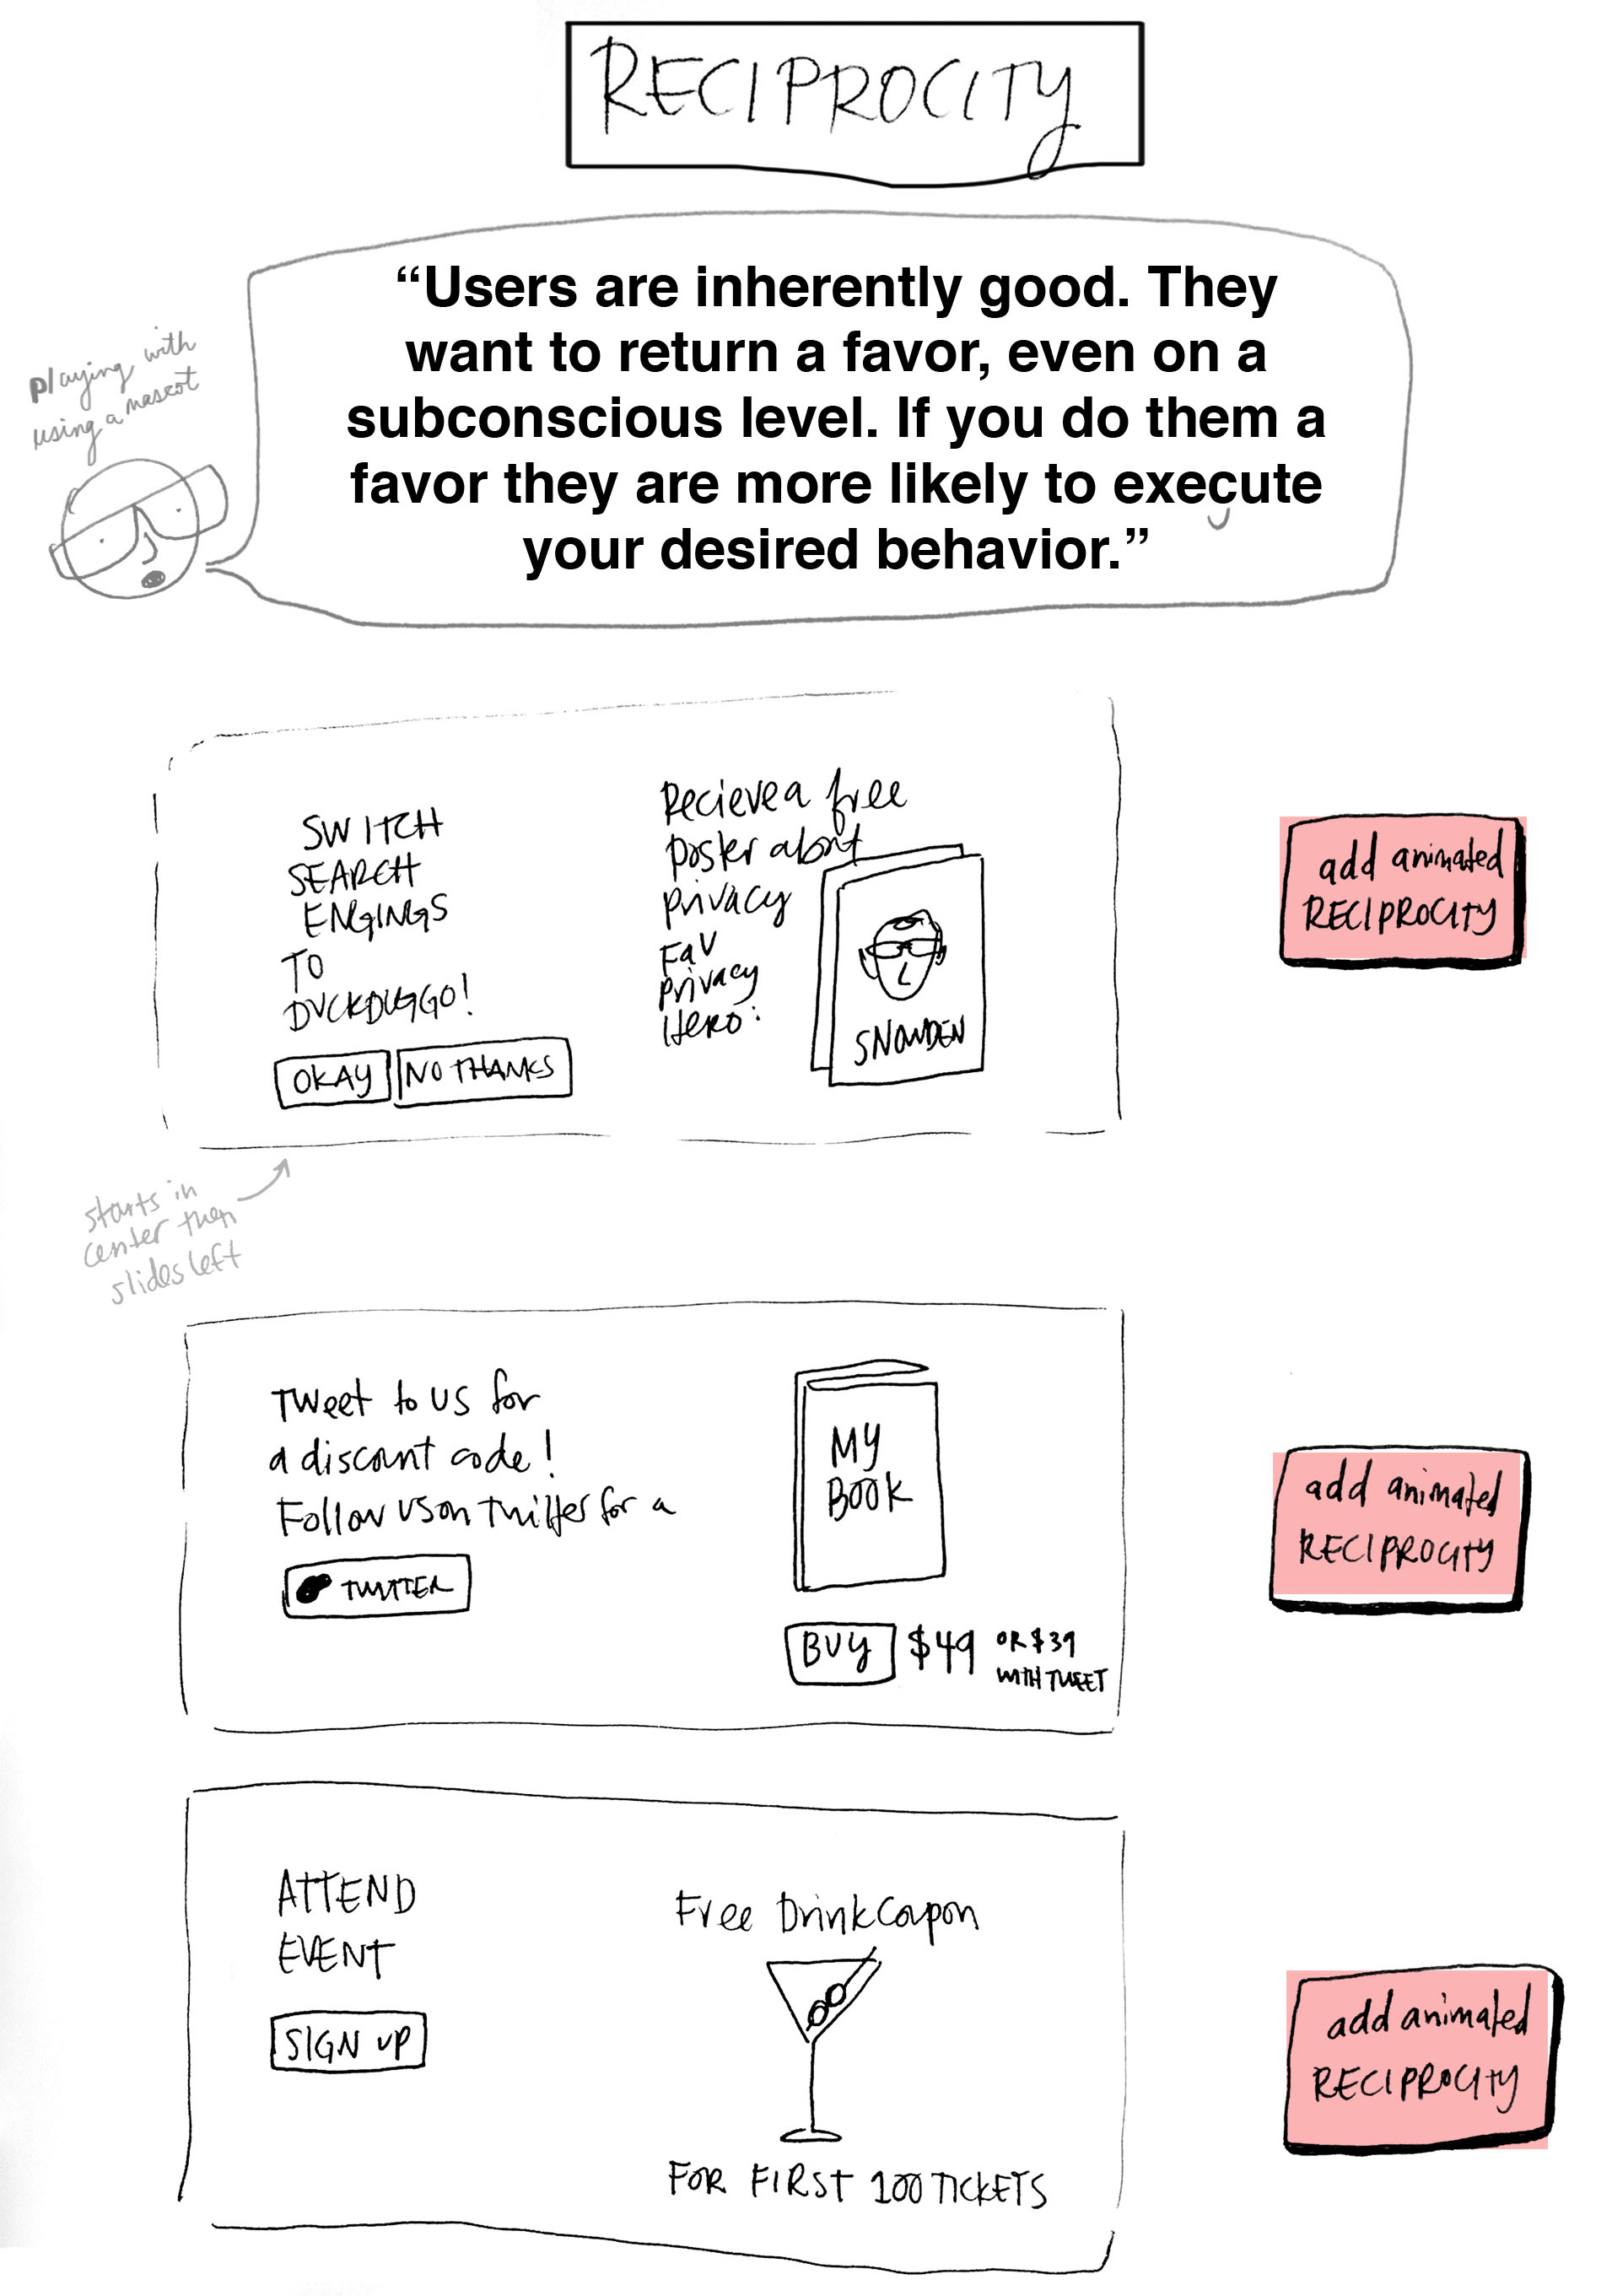 RECIPROCITY
“Users are inherently good. They
want to return a favor, even on a
subconscious level. If you do them a
favor they are more likely to execute
your desired behavior.”
playing with
using a mascot
SWITCH
SEARCH
ENGINGS
TO
DUCKDUGGO!
OKAY
NO THANKS
Recieve a free
poster about
privacy
Fav
privacy
Hero:
SNOWDEN
add animated
RECIPROCITY
starts in
center then
slides left
Tweet to us for
a discount code!
Follow us on twitter for a
TWITTER
MY
BOOK
BUY $49 OR $39
WITH TWEET
add animated
RECIPROCITY
ATTEND
EVENT
SIGN UP
Free Drink Coupon
FOR FIRST 100 TICKETS
add animated
RECIPROCITY